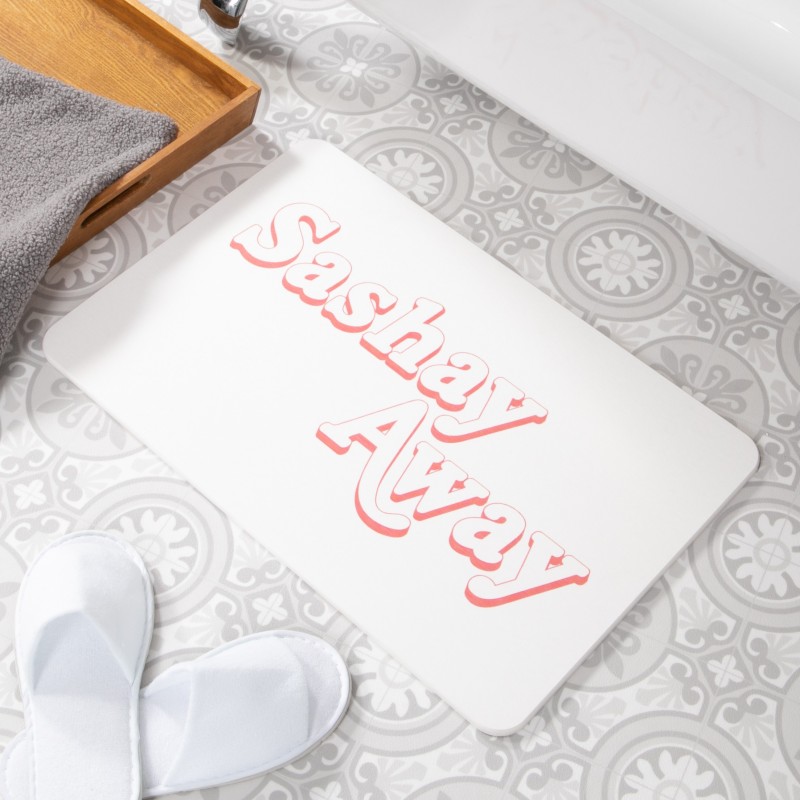 Sashay
Away